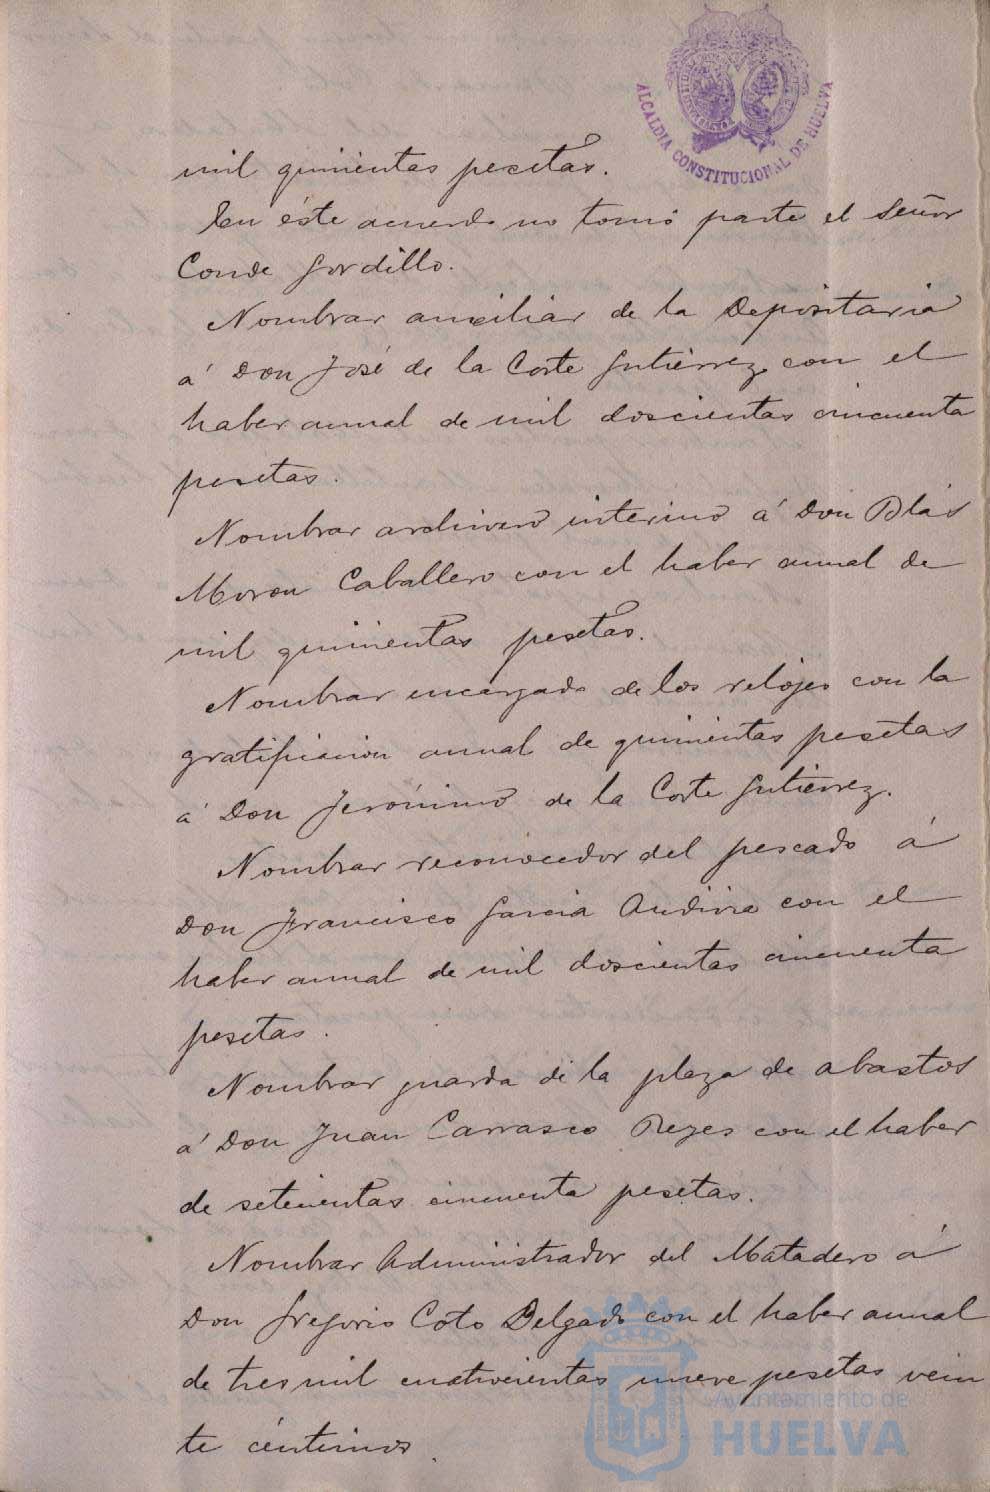 ALCALDIA CONSTITUCIONAL DE HUELVA
mil quinientas pesetas.
En éste acuerdo no tomó parte el Señor
Conde Gordillo.
Nombrar auxiliar de la Depositaria
á Don José de la Corte Gutiérrez con el
haber anual de mil doscientas cincuenta
pesetas.
Nombrar archivero interino á Don Blás
Moron Caballero con el haber anual de
mil quinientas pesetas.
Nombrar encargado de los relojes con la
gratificacion anual de quinientas pesetas
á Don Jerónimo de la Corte Gutiérrez.
Nombrar reconocedor del pescado á
Don Francisco Garcia con el
haber anual de mil doscientas cincuenta
pesetas.
Nombrar guarda de la plaza de abastos
á Don Juan Carrasco Reyes con el haber
de setecientas cincuenta pesetas.
Nombrar Administrador del Matadero á
Don Gregorio Coto Delgado con el haber anual
de tres mil cuatrocientas nueve pesetas vein
te céntimos
Ayuntamiento de
HUELVA